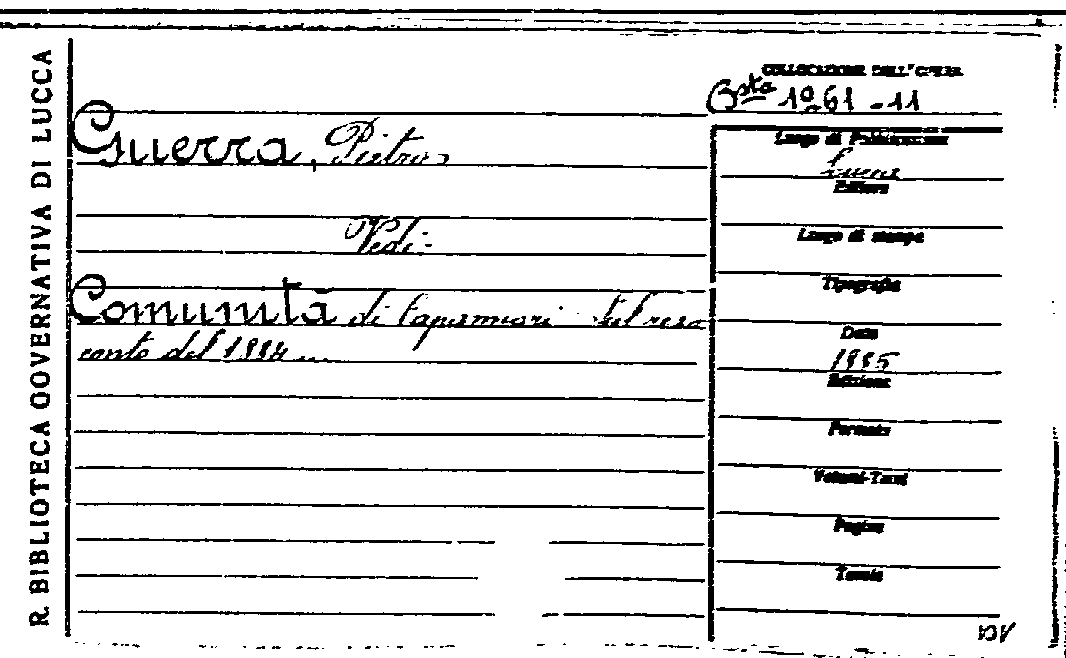 R. BIBLIOTECA GOVERNATIVA DI LUCCA
COLLOCAZIONE DELL'OPERA
Bsta 1961-11
Guerra, Pietro
Luogo di Pubblicazione
Lucca
Editore
Vedi:
Luogo di stampa
Tipografia
Comunità di Capannori. Sul reso
conto del 1884 ...
Data
1885
Edizione
Formato
Volumi-Tomi
Pagine
Tavole